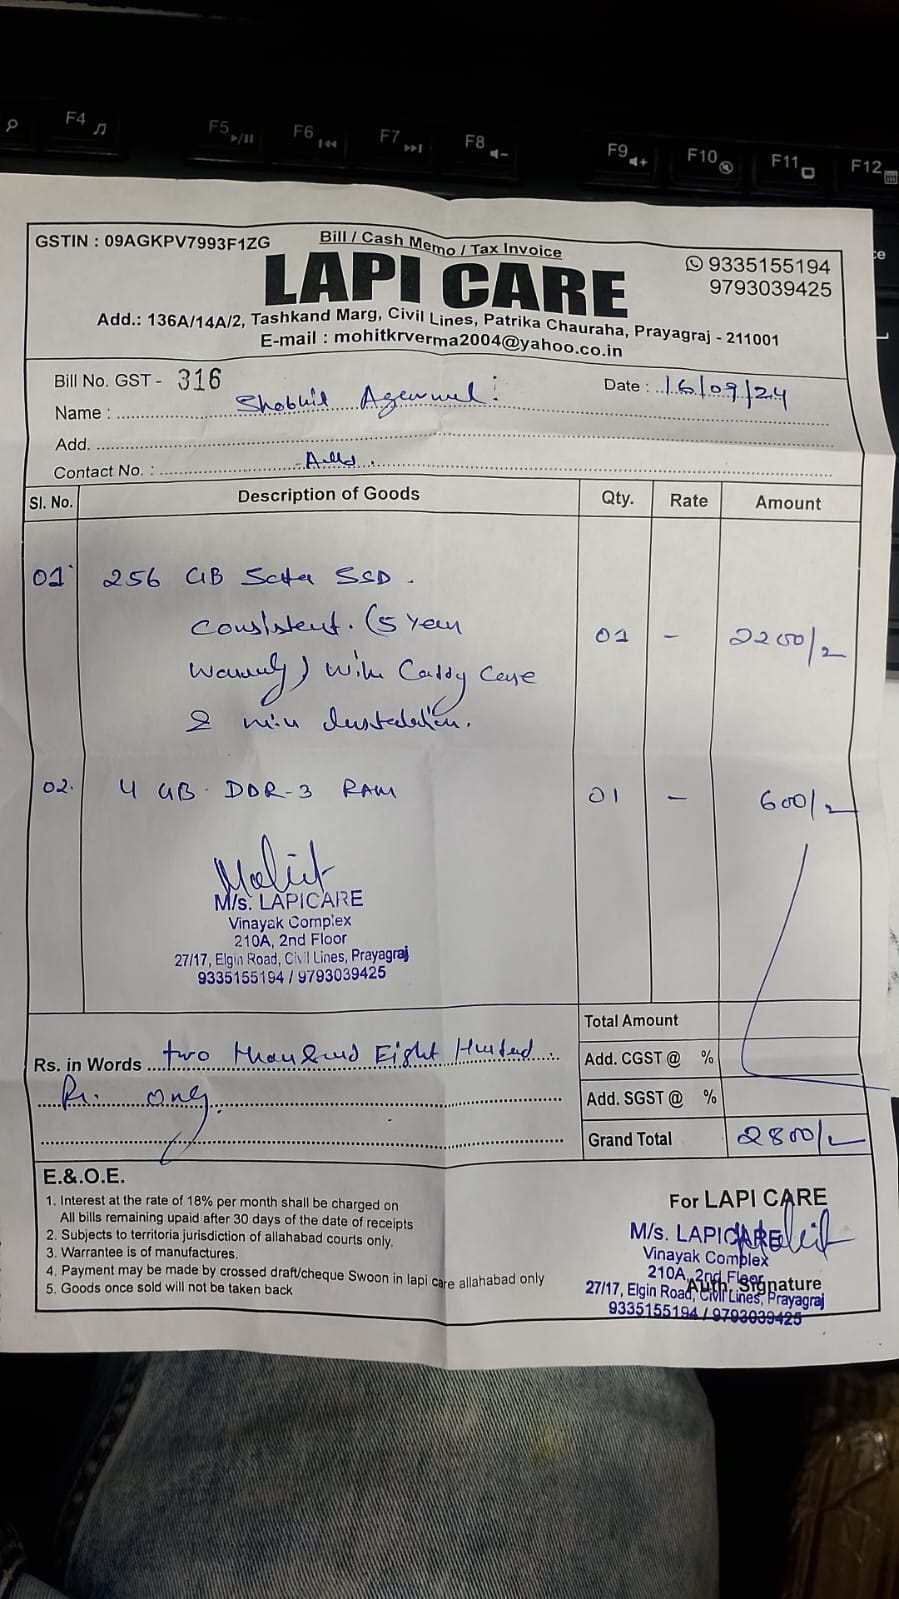 F4
F5
F6
F7
F8
F9
F10
F11
F12
GSTIN : 09AGKPV7993F1ZG
Bill / Cash Memo / Tax Invoice
9335155194
9793039425
LAPI CARE
Add.: 136A/14A/2, Tashkand Marg, Civil Lines, Patrika Chauraha, Prayagraj - 211001
E-mail : mohitkrverma2004@yahoo.co.in
Bill No. GST - 316
Date : 16/09/24
Name : Agarwal
Add.
Contact No. :
Sl. No. Description of Goods Qty. Rate Amount
01 256 GB Sata SSD.
Consistent. (5 Year
Warranty) With Caddy Case 01 - 2200/-
& win Installation.
02. 4 GB DDR-3 RAM 01 - 600/-
Mohit
M/s. LAPICARE
Vinayak Complex
210A, 2nd Floor
27/17, Elgin Road, Civil Lines, Prayagraj
9335155194 / 9793039425
Total Amount
Rs. in Words two thousand Eight Hundred
Add. CGST @ %
Rs. only.
Add. SGST @ %
Grand Total 2800/-
E.&.O.E.
1. Interest at the rate of 18% per month shall be charged on
All bills remaining upaid after 30 days of the date of receipts
2. Subjects to territoria jurisdiction of allahabad courts only.
3. Warrantee is of manufactures.
4. Payment may be made by crossed draft/cheque Swoon in lapi care allahabad only
5. Goods once sold will not be taken back
For LAPI CARE
M/s. LAPICARE
Mohit
Vinayak Complex
210A, 2nd Floor
Auth. Signature
27/17, Elgin Road, Civil Lines, Prayagraj
9335155194 / 9793039425